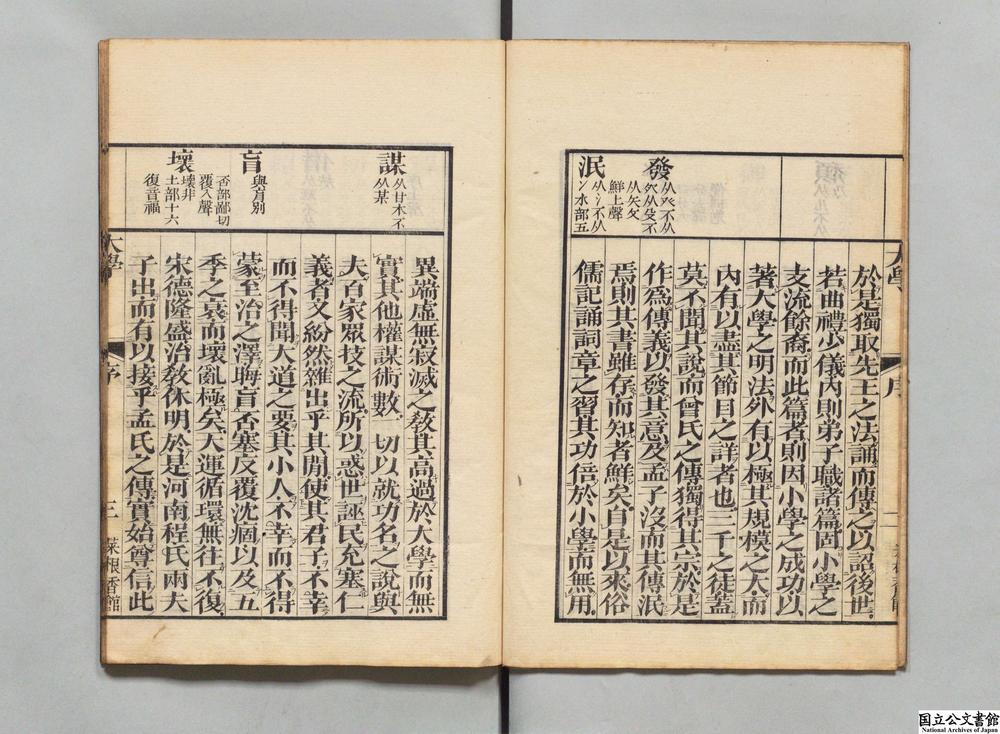 發
从癶不从
癶从殳不
从攵
鮮上聲
泯
从氵不从
冫水部五
於是獨取先王之法誦而傳之以詔後世
若曲禮少儀內則弟子職諸篇固小學之
支流餘裔而此篇者則因小學之成功以
著大學之明法外有以極其規模之大而
內有以盡其節目之詳者也三千之徒蓋
莫不聞其說而曾氏之傳獨得其宗於是
作爲傳義以發其意及孟子沒而其傳泯
焉則其書雖存而知者鮮矣自是以來俗
儒記誦詞章之習其功倍於小學而無用
謀
从甘木不
从某
盲
與肓別
否部鄙切
覆入聲
壞
壞非
土部十六
復音福
異端虛無寂滅之敎其高過於大學而無
實其他權謀術數一切以就功名之說與
夫百家眾技之流所以惑世誣民充塞仁
義者又紛然雜出乎其閒使其君子不幸
而不得聞大道之要其小人不幸而不得
蒙至治之澤晦盲否塞反覆沈痼以及五
季之衰而壞亂極矣天運循環無往不復
宋德隆盛治敎休明於是河南程氏兩夫
子出而有以接乎孟氏之傳實始尊信此
大學 序 三 菜根香館
国立公文書館
National Archives of Japan